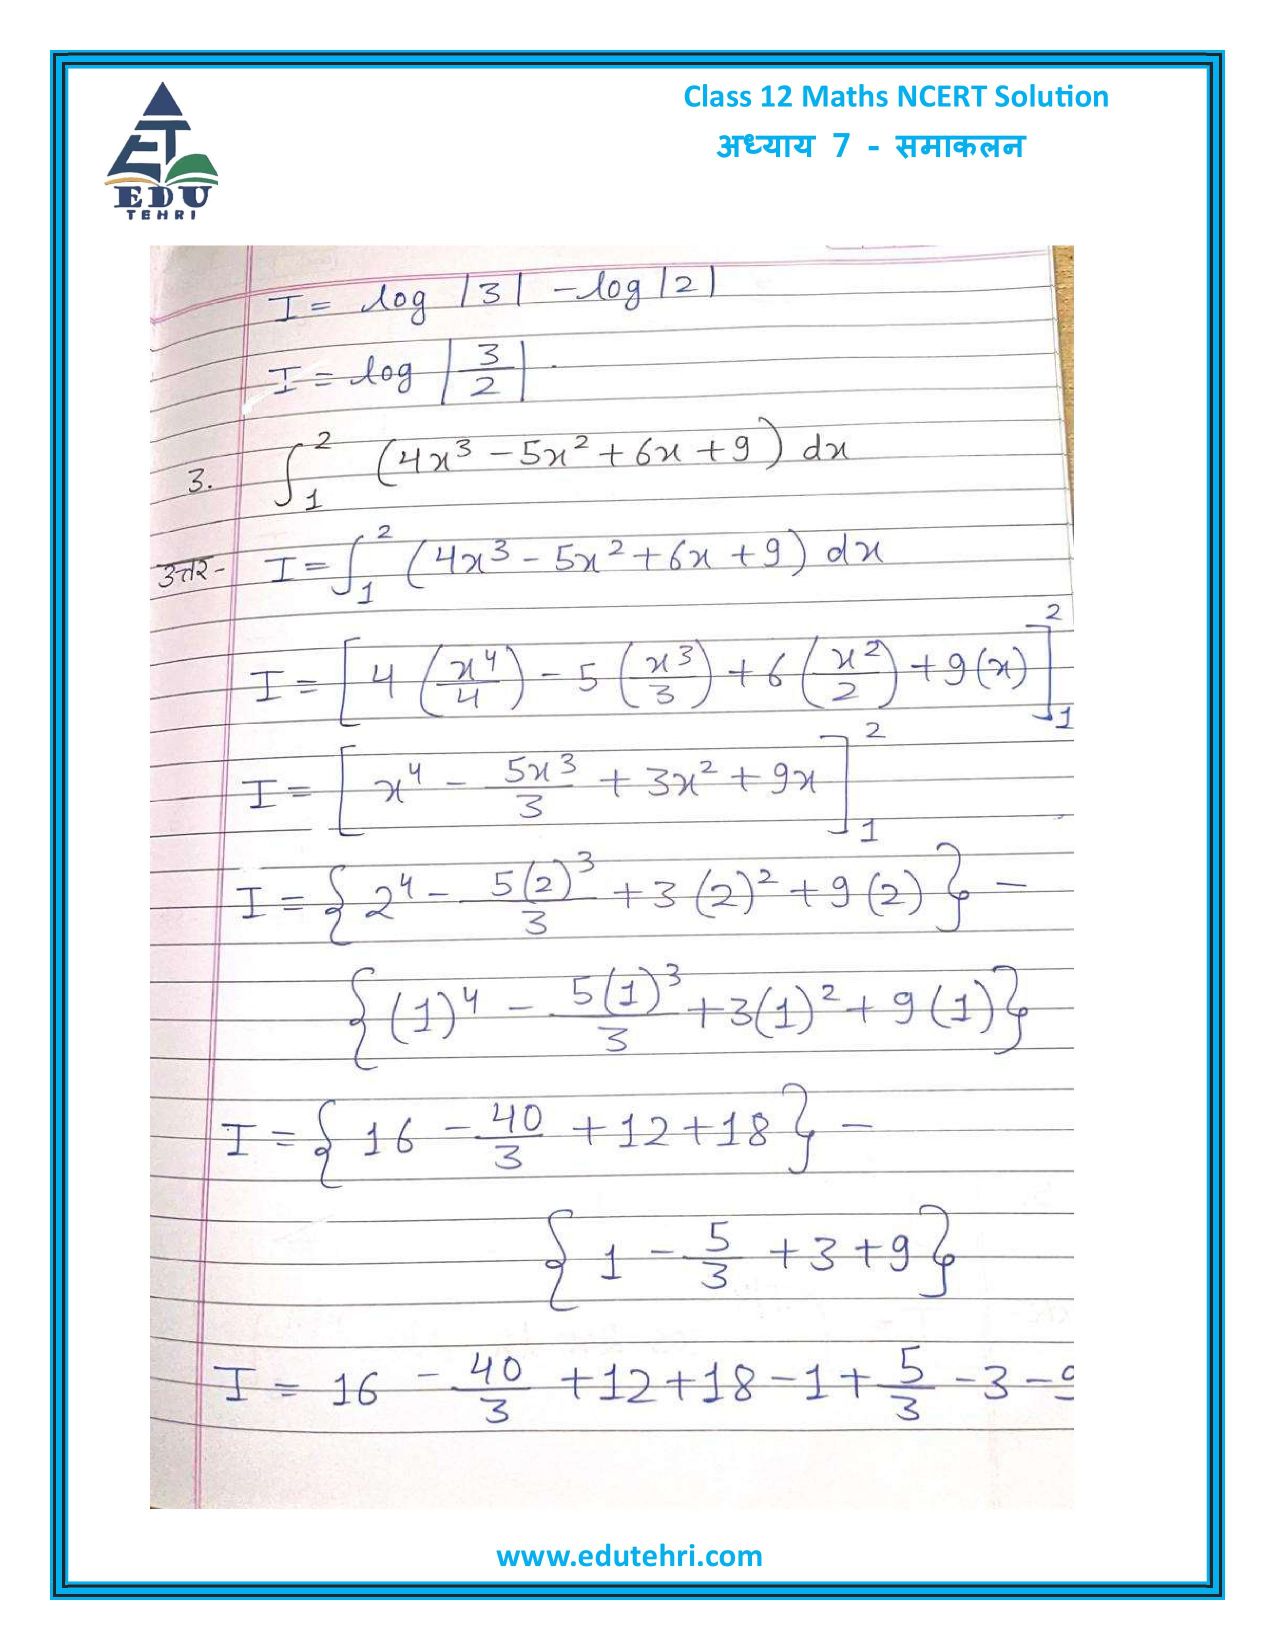 Class 12 Maths NCERT Solution
अध्याय 7 - समाकलन
EDU
TEHRI
I = log |3| - log |2|
I = log |3/2|
3. ∫₁² (4x³ - 5x² + 6x + 9) dx
उत्तर- I = ∫₁² (4x³ - 5x² + 6x + 9) dx
I = [4 (x⁴/4) - 5 (x³/3) + 6 (x²/2) + 9(x)]₁²
I = [x⁴ - 5x³/3 + 3x² + 9x]₁²
I = {2⁴ - 5(2)³/3 + 3(2)² + 9(2)} -
{(1)⁴ - 5(1)³/3 + 3(1)² + 9(1)}
I = {16 - 40/3 + 12 + 18} -
{1 - 5/3 + 3 + 9}
I = 16 - 40/3 + 12 + 18 - 1 + 5/3 - 3 - 9
www.edutehri.com